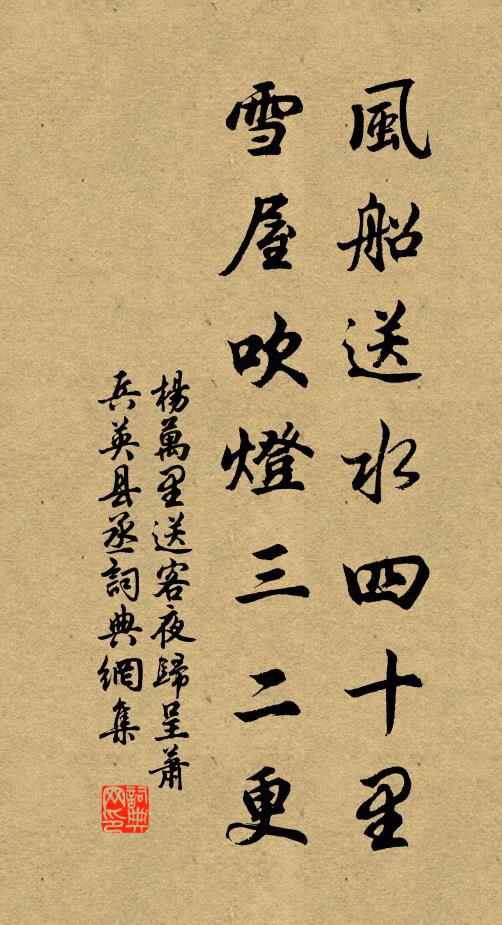 風船送水四十里
雪屋吹燈三二更
楊萬里送客夜歸呈蕭
兵英县丞詞典網集
詞典網印